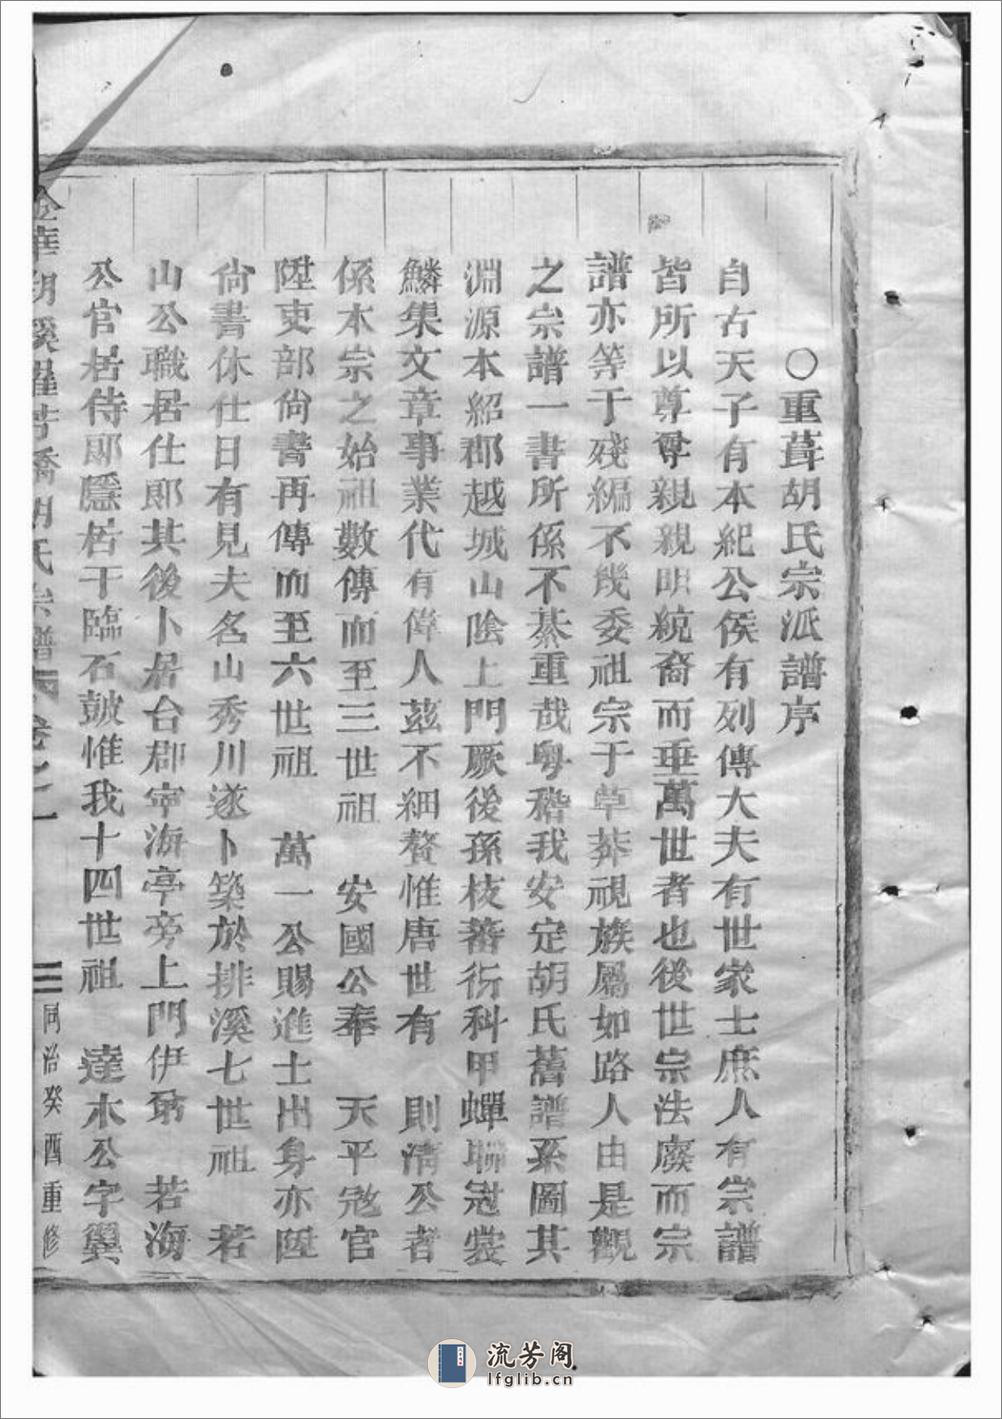 〇重葺胡氏宗派譜序
自古天子有本紀公侯有列傳大夫有世家士庶人有宗譜
皆所以尊尊親親明統裔而垂萬世者也後世宗法廢而宗
譜亦等于殘編不幾委祖宗于草莽視族屬如路人由是觀
之宗譜一書所係不綦重哉粵稽我安定胡氏舊譜系圖其
淵源本紹郡越城山陰上門厥後孫枝蕃衍科甲蟬聯冠裳
鱗集文章事業代有偉人茲不細贅惟唐世有 則清公者
係本宗之始祖數傳而至三世祖 安國公奉 天平冦官
陞吏部尙書再傳而至六世祖 萬一公賜進士出身亦陞
尙書休仕日有見夫名山秀川遂卜築於排溪七世祖 若
山公職居仕郎其後卜居台郡寧海亭旁上門伊弟 若海
公官居侍郎隱居于臨石鼓惟我十四世祖 達木公字翼
金華胡溪 橋胡氏宗譜 卷之一 三 同治癸酉重修
流芳阁
lfglib.cn